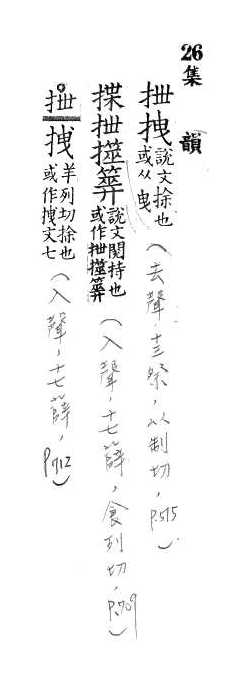 26集韻
抴拽說文捈也或从曳(去聲,十三祭,以制切,P.515)
揲抴㩨筭說文閱持也或作抴㩨筭(入聲,十七薛,食列切,P.709)
抴拽羊列切捈也或作拽文七(入聲,十七薛,P.712)